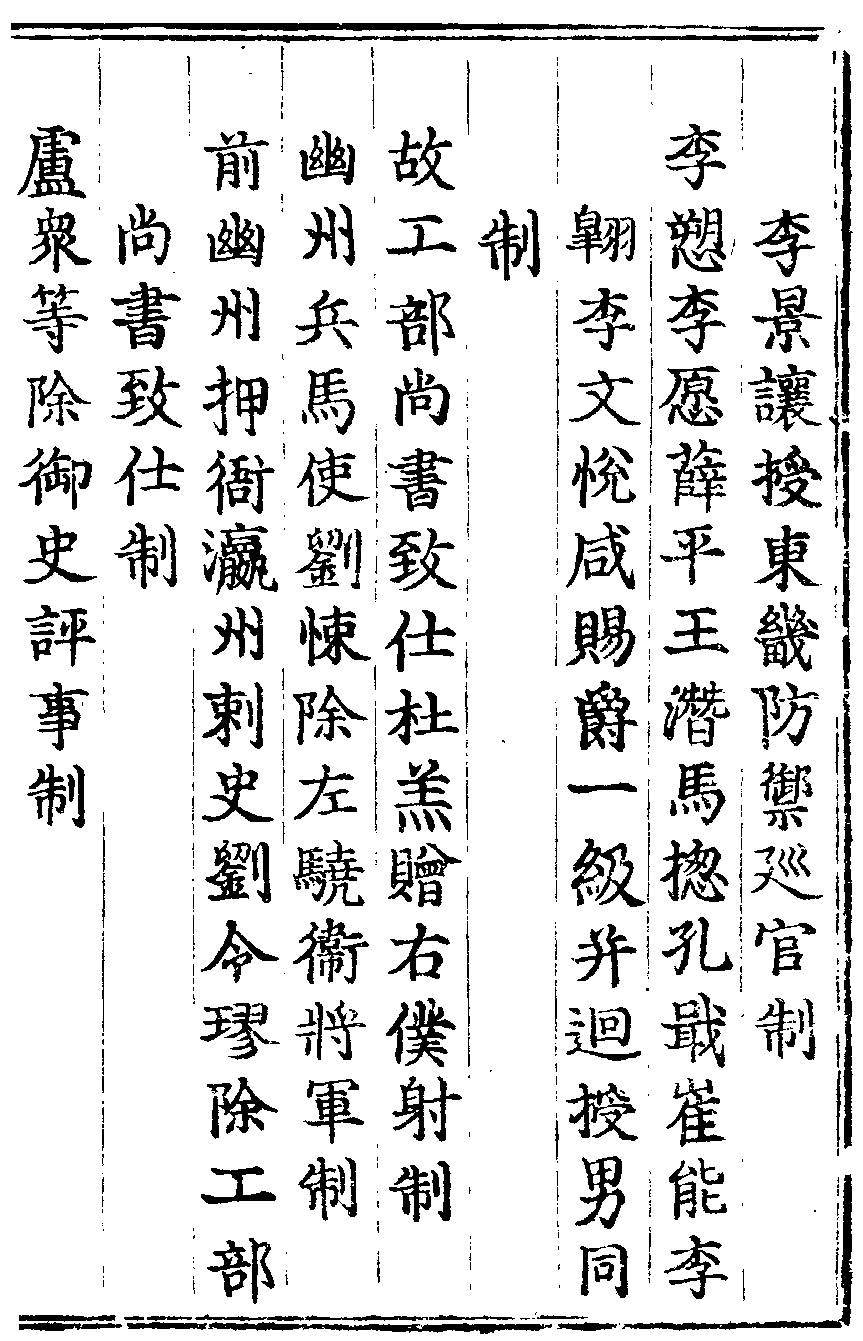 李景讓授東畿防禦巡官制
李愬李愿薛平王潛馬揔孔戢崔能李
翺李文悅咸賜爵一級并迴授男同
制
故工部尚書致仕杜羔贈右僕射制
幽州兵馬使劉悚除左驍衞將軍制
前幽州押衙瀛州刺史劉令璆除工部
尚書致仕制
盧衆等除御史評事制